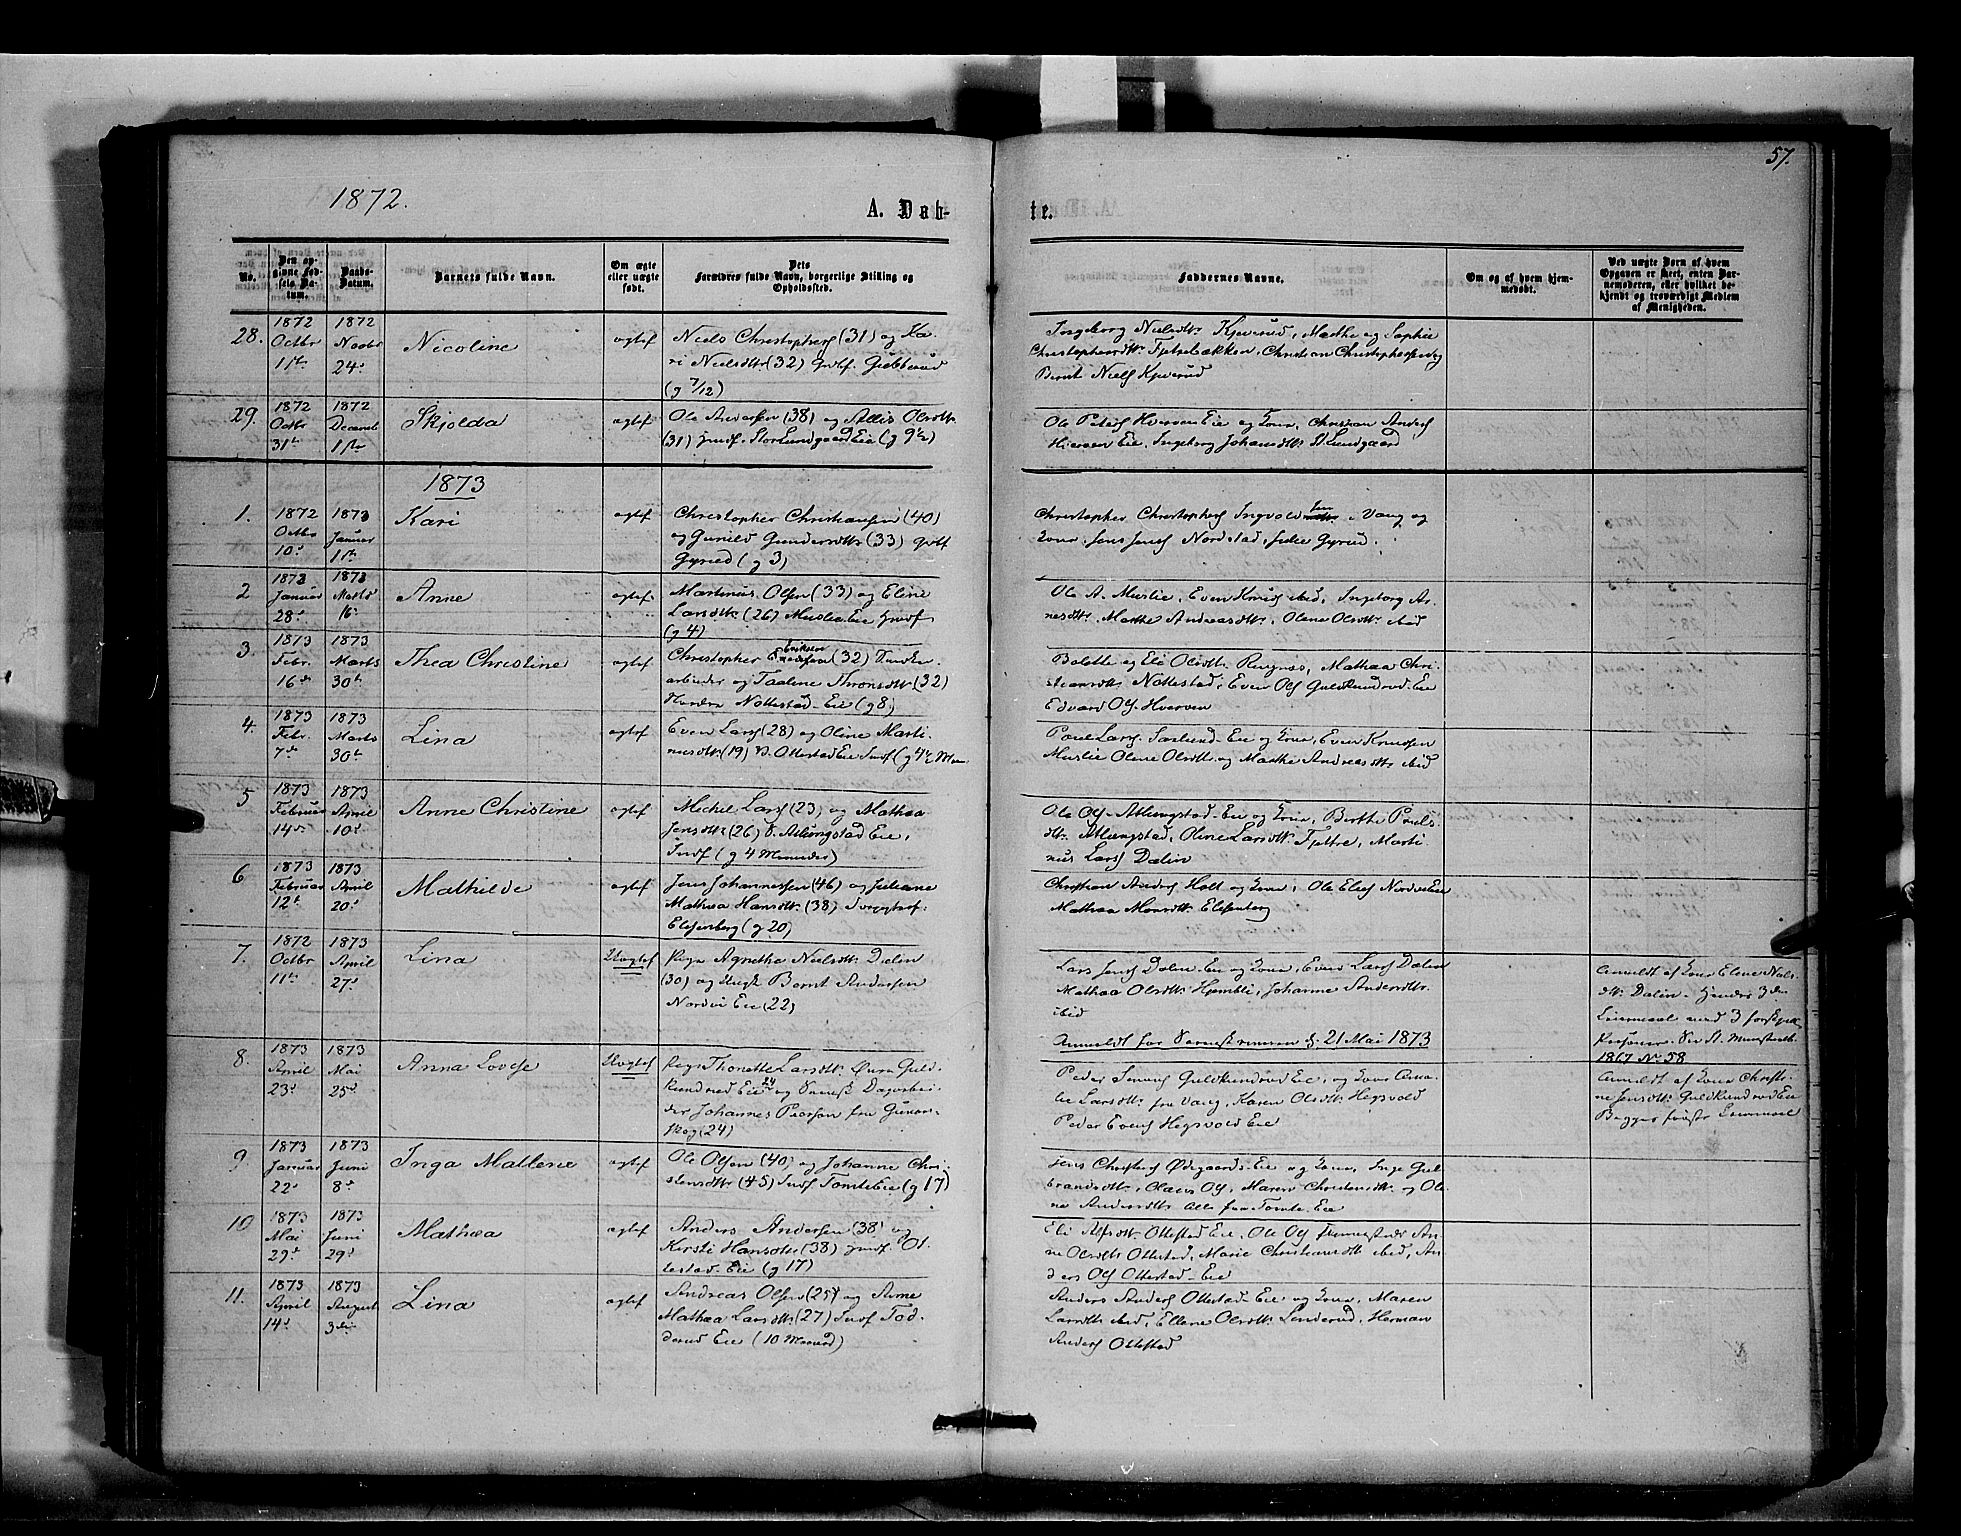 57.
1872.
A. Døb-
te.
No.
Den opgivne Fødsels Datum.
Daabs-Datum.
Barnets fulde Navn.
Om ægte eller uægte født.
Dets Forældres fulde Navn, borgerlige Stilling og Opholdssted.
Faddernes Navne.
Om og af hvem hjemmedøbt.
Ved uægte Børn af hvem Opgaven er skeet, enten Barnemoderen, eller hvilket bekjendt og troværdigt Medlem af Menigheden.
28. 1872 Octbr 11te 1872 Novbr 24d Nicoline ægtef
Niels Christophers (31) og Ka-
ri Nielsdtr (32) Gubberud
(g 7/12)
Ingeborg Nielsdtr Kjverud, Marthe og Sophie
Christophersdtr. Fjetrebækken, Christian Christophersen og
Bernt Niels Kjverud
29. 1872 Octbr 31te 1872 Decemb 1ste Skjolda ægtef
Ole Andersen (38) og Allis Olsdtr
(31) Indf. Storlundgaard Eie (g 9½)
Ole Peters Hverven Eie og Kone, Christian Anders
Hverven Eie, Ingeborg Johansdtr St. Lundgaard
1873
1. 1872 Octbr 10d 1873 Januar 1ste Kari ægtef
Christopher Christiansen (40)
og Gunild Gundersdtr (33)
Gyrud (g 3)
Christopher Christophers Ingvold i Vang og
Kone, Jens Jens Nordstad, Julie Gyrud.
2 1873 Januar 28d 1873 Marts 16d Anne ægtef
Martinus Olsen (33) og Eline
Larsdtr (26) Muslie Eie Indf
(g 4)
Ole A. Muslie, Even Knuds ibid, Ingeborg Ar-
nesdtr, Marthe Andreasdtr, Olene Olsdtr ibid
3 1873 Febr. 16de 1873 Marts 30te Thea Christine ægtef
Christopher Eriksen (32)
arbeider og Taaline Thronsdtr (32)
Nordre Nottestad-Eie (g 8)
Bolette og Eli Olsdtr Ringnes, Mathea Chri-
stiansdtr Nottestad, Even Ols Guldkundrud-Eie
Edvard Ols. Hverven
4. 1873 Febr. 7de 1873 Marts 30te Lina ægtef
Even Lars (28) og Oline Marti-
nusdtr (19) V. Ottestad Eie Indf (g 4½ Mm
Poul Lars Sælund-Eie og Kone, Even Knudsen
Muslie Olene Olsdtr og Marthe Andreasdtr ibid
5 1873 Februar 14de 1873 April 10d Anne Christine ægtef
Michel Lars (23) og Mathea
Jensdtr (26) S. Atlungstad Eie,
Indf (g 4 Maaneder)
Ole Ols Atlungstad-Eie og Kone, Berthe Pouls-
dtr. Atlungstad, Oline Larsdtr Fjetre, Marti-
nus Lars Dælin
6 1873 Februar 12te 1873 April 20d Mathilde ægtef
Jens Johannessen (46) og Juliane
Mathea Hansdtr (38)
Elisenberg (g 20)
Christian Anders Holt og Kone, Ole Elies Nordvi Eie
Mathea Monsdtr Elisenberg
7. 1872 Octbr 11te 1873 April 27d Lina Uægtef
Pige Agnethe Nielsdtr Dælin
(30) og Ungk Bernt Andersen
Nordvi Eie (22)
Lars Jens Dælin-Eie og Kone, Even Lars Dælin
Mathea Olsdtr Hjembli, Johanne Andersdtr
ibid
Anmeldt for 21 Mai 1873
Anmeldt af Kone Elene Niels-
dtr. Dælin. Hendes 3die
Leiermaal med 3 forskjel.
1867 No. 58
8. 1873 April 23d 1873 Mai 25d Anna Lovise Uægtef
Pige Thonette Larsdtr Øvre Guld-
kundrud Eie 24 og Svensk Dagarbei-
der Johannes Persson fra Gunar-
skog (24)
Peder Guldkundrud Eie, og Kone Ama-
lie Larsdtr fra Vang, Karen Olsdtr Hegsvold
Peder Evens Hegsvold Eie
Anmeldt af Kone Christi-
ne Jensdtr Guldkundrud Eie
Begges første Leiermaal
9 1873 Januar 22d 1873 Juni 8d Inga Mallene ægtef
Ole Olsen (40) og Johanne Chri-
stensdtr (45) Indf Tomte Eie (g 17)
Jens Christens Ødegaards-Eie og Kone, Inge Gul-
brandsdtr, Olaus Ols, Maren Christensdtr og Ole-
ne Andersdtr alle fra Tomte Eie
10 1873 Mai 29d 1873 Juni 29d Mathea ægtef
Anders Andersen (38) og
Kirsti Hansdtr (38) Indf. Ot-
testad-Eie (g 17)
Eli Alfsdtr Ottestad Eie, Ole Ols An-
ne Olsdtr Ottestad, Marie Christiansdtr ibid, An-
ders Ols Ottestad-Eie
11. 1873 April 14d 1873 August 3die Lina ægtef
Andreas Olsen (25) og Anne
Mathea Larsdtr (27) Indf Tod-
derud Eie (10 Maaned)
Anders Anders Ottestad-Eie og Kone, Maren
Larsdtr ibid, Ellene Olsdtr Linderud, Herman
Anders Ottestad